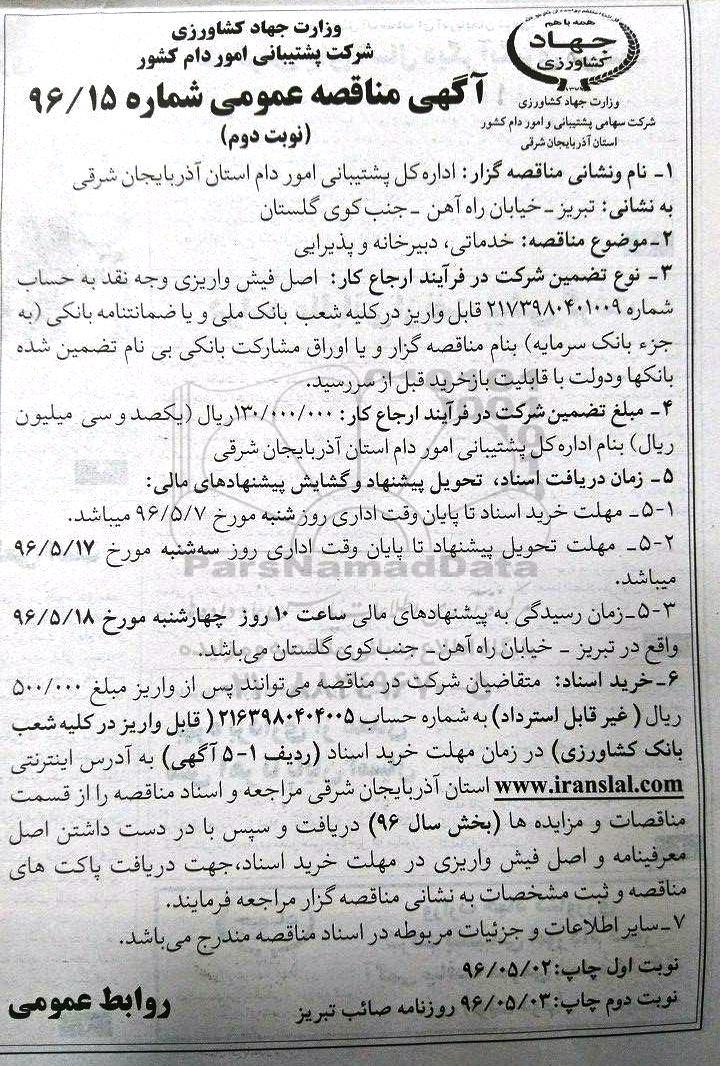 همه با هم
جهاد
کشاورزی
وزارت جهاد کشاورزی
شرکت سهامی پشتیبانی و امور دام کشور
استان آذربایجان شرقی
وزارت جهاد کشاورزی
شرکت پشتیبانی امور دام کشور
آگهی مناقصه عمومی شماره ۹۶/۱۵
(نوبت دوم)
۱ـ نام ونشانی مناقصه گزار: اداره کل پشتیبانی امور دام استان آذربایجان شرقی
به نشانی: تبریز ـ خیابان راه آهن ـ جنب کوی گلستان
۲ـ موضوع مناقصه: خدماتی، دبیرخانه و پذیرایی
۳ـ نوع تضمین شرکت در فرآیند ارجاع کار: اصل فیش واریزی وجه نقد به حساب
شماره ۲۱۷۳۹۸۰۴۰۱۰۰۹ قابل واریز در کلیه شعب بانک ملی و یا ضمانتنامه بانکی (به
جزء بانک سرمایه) بنام مناقصه گزار و یا اوراق مشارکت بانکی بی نام تضمین شده
بانکها ودولت با قابلیت بازخرید قبل از سررسید.
۴ـ مبلغ تضمین شرکت در فرآیند ارجاع کار: ۱۳۰/۰۰۰/۰۰۰ریال (یکصد و سی میلیون
ریال) بنام اداره کل پشتیبانی امور دام استان آذربایجان شرقی
۵ـ زمان دریافت اسناد، تحویل پیشنهاد و گشایش پیشنهادهای مالی:
۵-۱ـ مهلت خرید اسناد تا پایان وقت اداری روز شنبه مورخ ۹۶/۵/۷ میباشد.
۵-۲ـ مهلت تحویل پیشنهاد تا پایان وقت اداری روز سه‌شنبه مورخ ۹۶/۵/۱۷
میباشد.
۵-۳ـ زمان رسیدگی به پیشنهادهای مالی ساعت ۱۰ روز چهارشنبه مورخ ۹۶/۵/۱۸
واقع در تبریز ـ خیابان راه آهن ـ جنب کوی گلستان می‌باشد.
۶ـ خرید اسناد: متقاضیان شرکت در مناقصه می‌توانند پس از واریز مبلغ ۵۰۰/۰۰۰
ریال ( غیر قابل استرداد) به شماره حساب ۲۱۶۳۹۸۰۴۰۴۰۰۵ ( قابل واریز در کلیه شعب
بانک کشاورزی) در زمان مهلت خرید اسناد (ردیف ۱-۵ آگهی) به آدرس اینترنتی
www.iranslal.com استان آذربایجان شرقی مراجعه و اسناد مناقصه را از قسمت
مناقصات و مزایده ها (بخش سال ۹۶) دریافت و سپس با در دست داشتن اصل
معرفینامه و اصل فیش واریزی در مهلت خرید اسناد،جهت دریافت پاکت های
مناقصه و ثبت مشخصات به نشانی مناقصه گزار مراجعه فرمایند.
۷ـ سایر اطلاعات و جزئیات مربوطه در اسناد مناقصه مندرج می‌باشد.
نوبت اول چاپ: ۹۶/۰۵/۰۲
نوبت دوم چاپ: ۹۶/۰۵/۰۳ روزنامه صائب تبریز
روابط عمومی
ParsNamadData